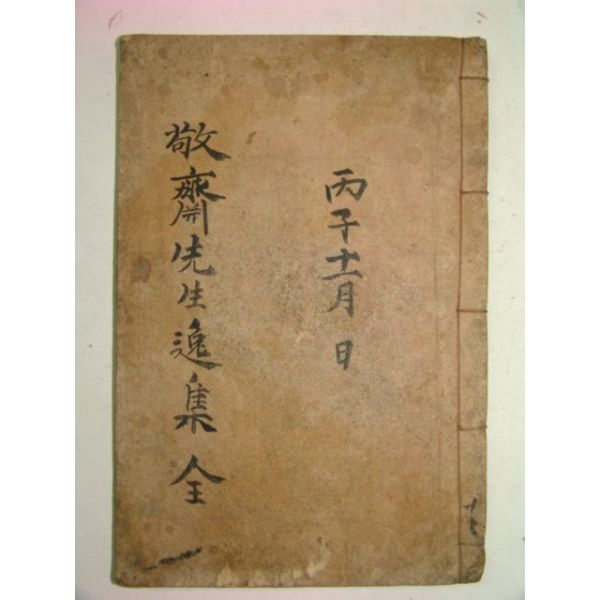 丙子十一月 日
敬齋先生逸集 全
一